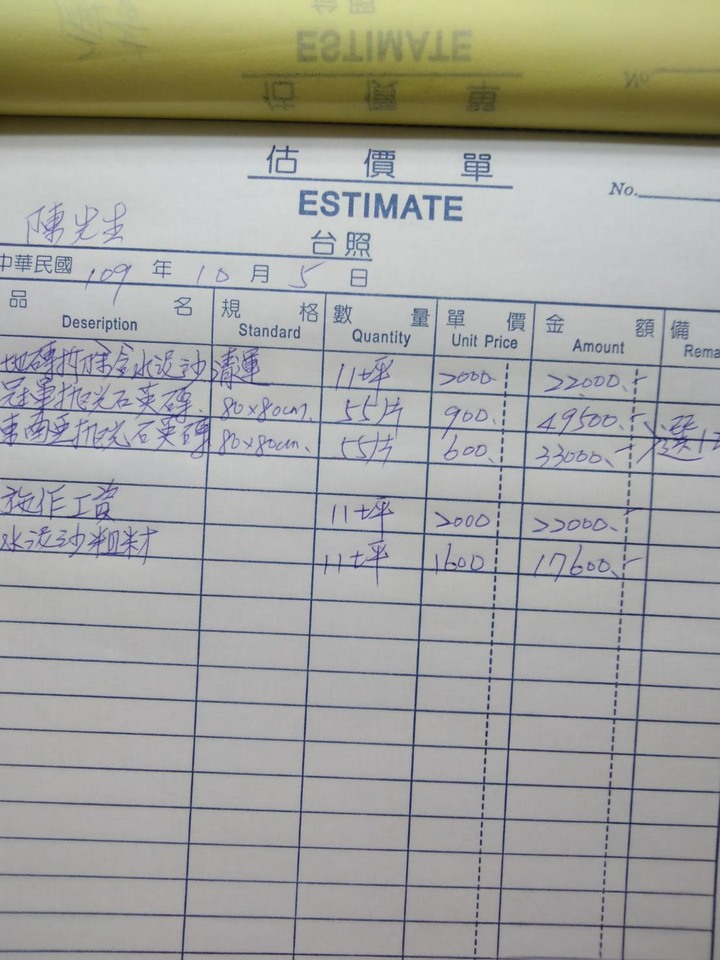 ESTIMATE
估價單
No.
估價單
ESTIMATE
No.
陳先生
台照
中華民國 109 年 10 月 5 日
品名 規格 數量 單價 金額 備
Deseription Standard Quantity Unit Price Amount Rema
地磚拆除含水泥沙清運 11坪 2000 22000.-
冠軍拋光石英磚 80×80cm 55片 900 49500.-
東南亞拋光石英磚 80×80cm 55片 600 33000.- 選1
施作工資 11坪 2000 22000.-
水泥沙粗材 11坪 1600 17600.-